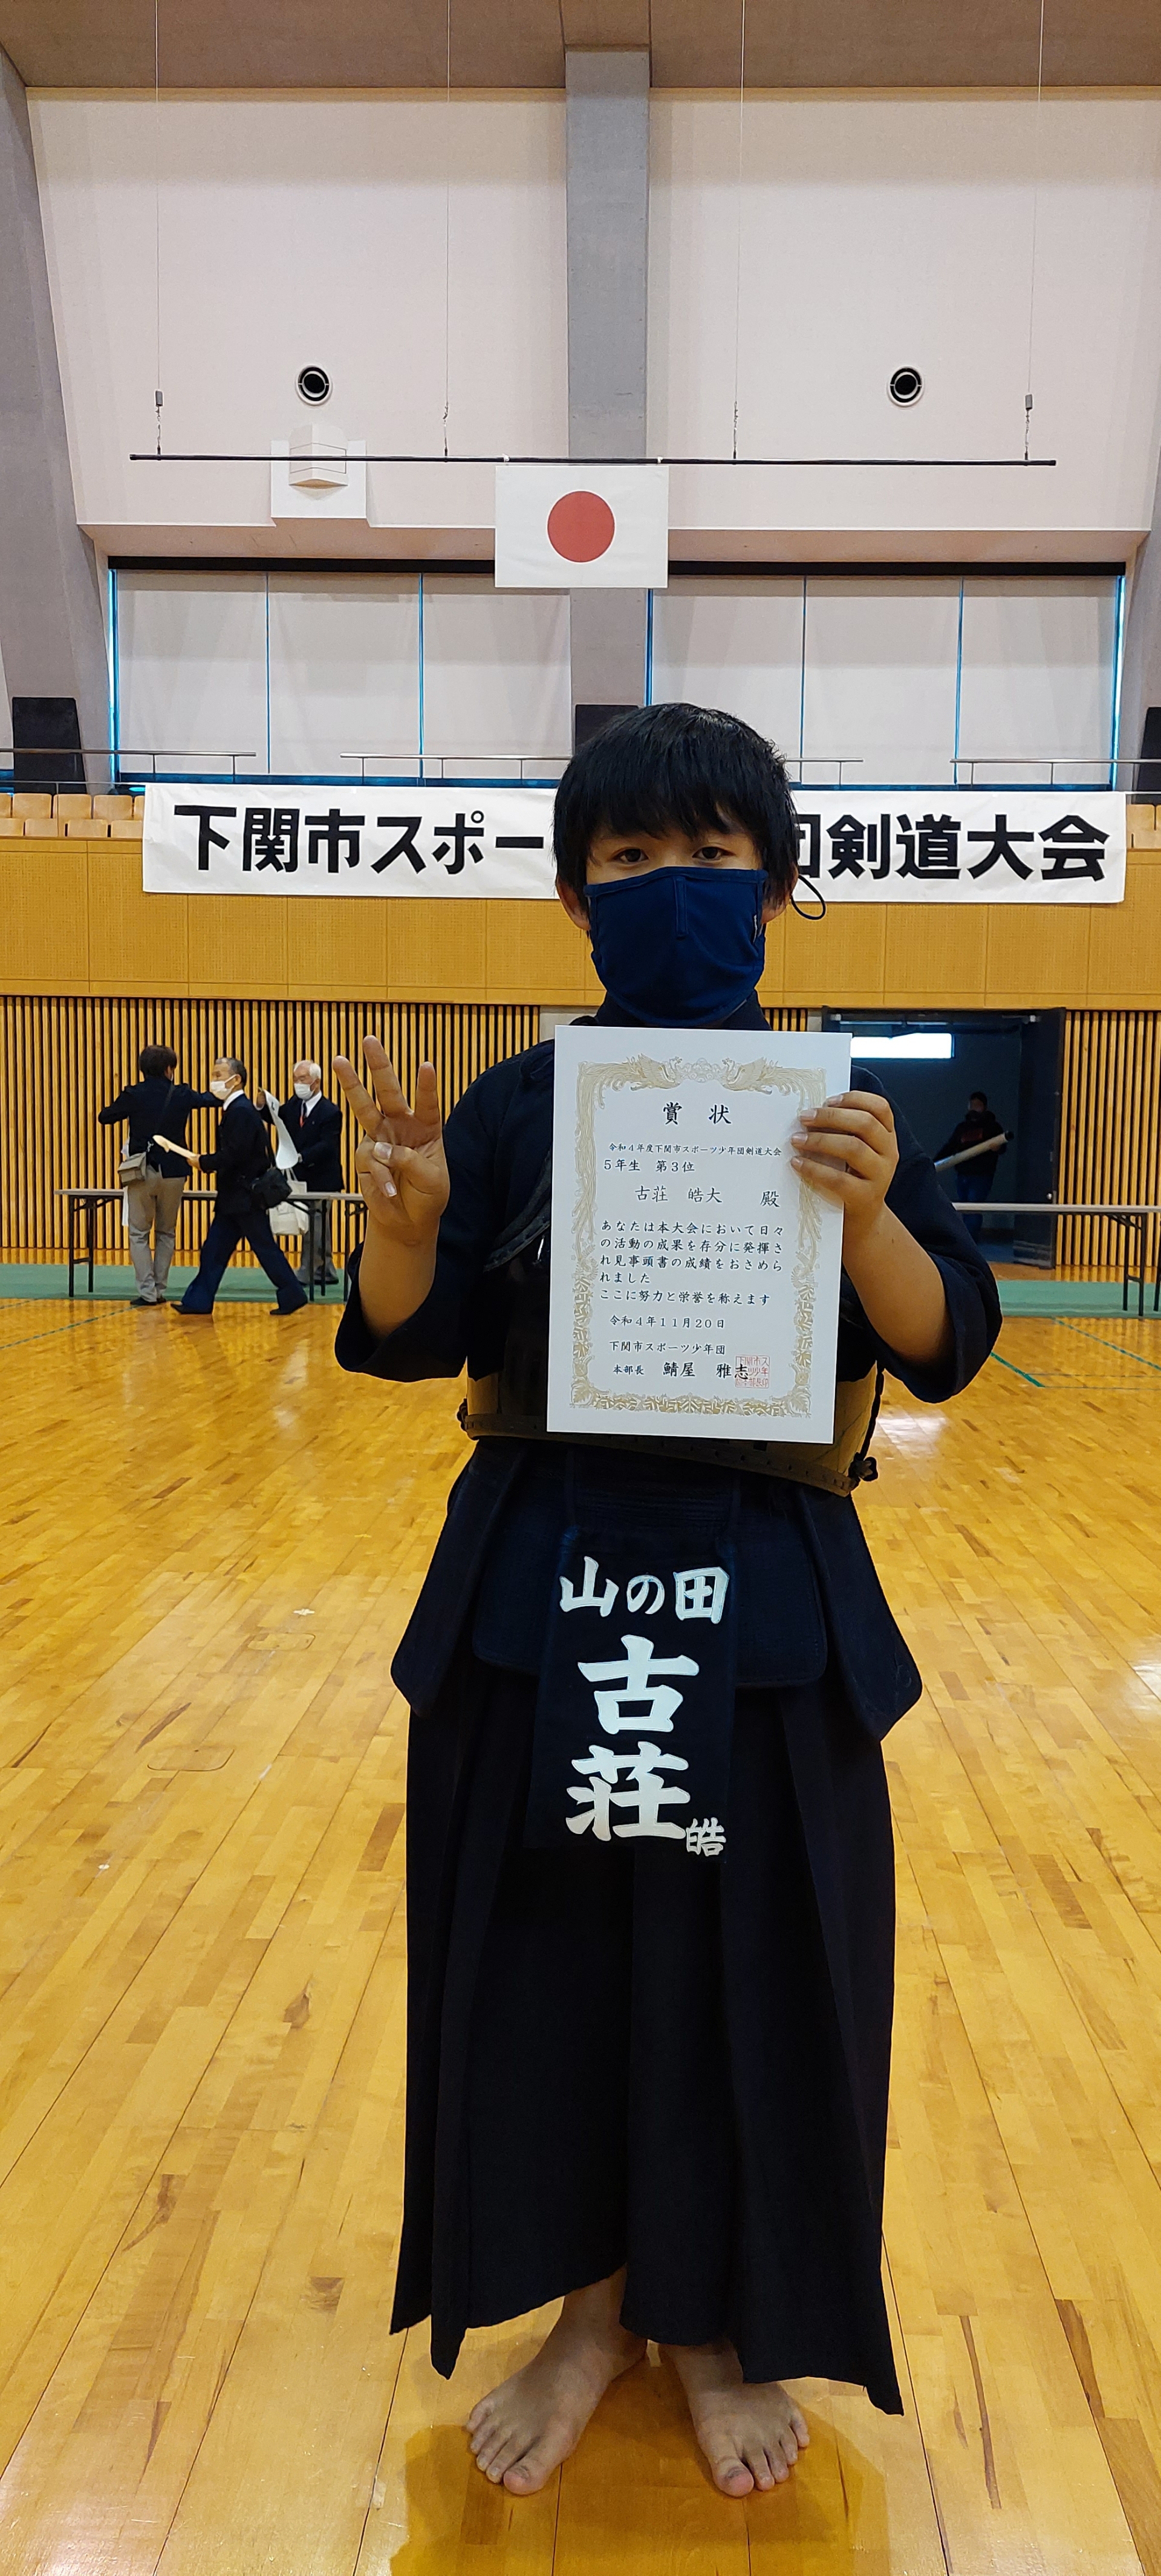 下関市スポー
団剣道大会
賞状
令和4年度下関市スポーツ少年団剣道大会
5年生 第3位
古荘 皓大 殿
あなたは本大会において日々
の活動の成果を存分に発揮さ
れ見事頭書の成績をおさめら
れました
ここに努力と栄誉を称えます
令和4年11月20日
下関市スポーツ少年団
本部長 鯖屋 雅志
山の田
古
荘
皓